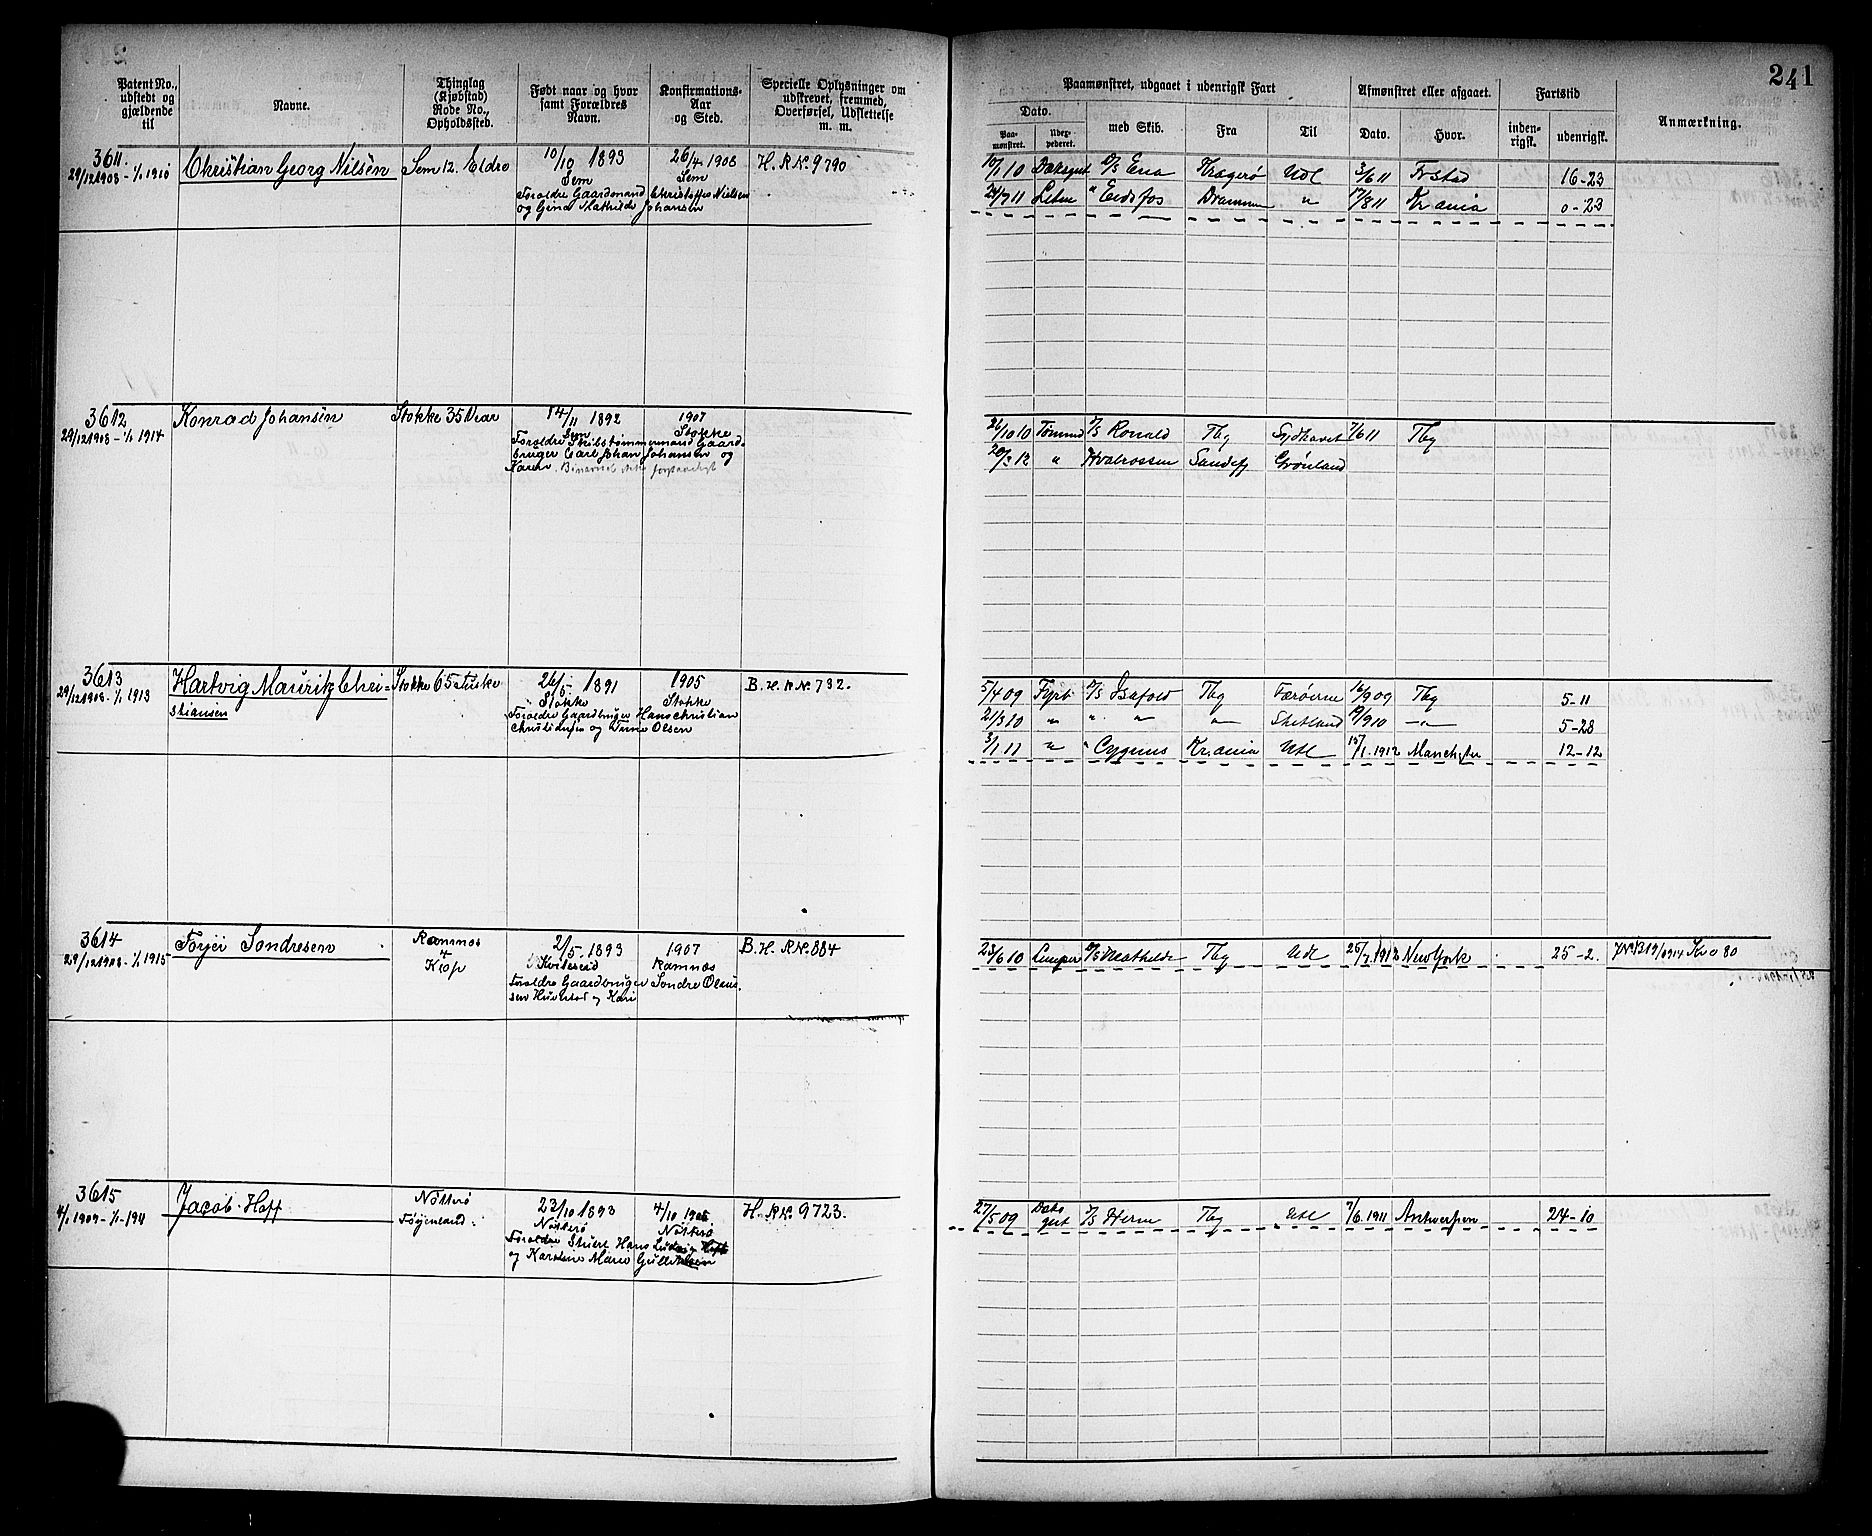 241
Patent No., udstedt og gjældende til
Navne.
Thinglag (Kjøbstad) Rode No., Opholdssted.
Født naar og hvor samt Forældres Navn.
Konfirmations-Aar og Sted.
Specielle Oplysninger om udskrevet, fremmed, Overførsel, Udslettelse m. m.
Paamønstret, udgaaet i udenrigsk Fart
Dato.
Paa-mønstret.
med Skib.
Fra
Til
Afmønstret eller afgaaet.
Dato.
Hvor.
Fartstid
inden-rigsk.
udenrigsk.
Anmærkning.
3611. Christian Georg Nilsen Sem 12. Eldrø 10/10 1893 26/4 1908 H. R No. 9390
29/12 1908 - 1/1 1910 Sem Sem
Forældre Gaardmand Christoffer Nielsen
og Gina Mathilde Johansen
10/1 10 Dæksgut D/S Era Kragerø Udl 3/6 11 Frstad 16-23
24/7 11 " Eidsfos Drammen " 17/8 11 Kr.ania 0-23
3612 Konrad Johansen Stokke 35 Vear 14/11 1892 1907
29/12 1908 - 1/1 1914 Sem Stokke
Forældre Skibstømmermand Gaard-
bruger Carl Johan Johansen og
Karen.
26/10 10 Tømmd D/S Ronald Tbg Sydhavet 7/6 11 Tbg
20/2 12 " Hvalrossen Sandefj Grønland
3613 Hartvig Mauritz Chri- Stokke 65 26/5 1891 1905 B. H. R No. 732.
29/12 1908 - 1/1 1913 stiansen Stokke Stokke
Forældre Gaardbruger Hans Christian
og Olsen
5/4 09 Fyrb D/S Isafold Tbg Færøerne 16/9 09 Tbg 5-11
21/3 10 " " " " Shetland 19/9 10 " 5-28
3/1 11 " " Cygnus Kr.ania Udl 15/1 1912 Manchester 12-12
3614 Torjei Sondresen Ramnæs 2/5 1893 1907 B. H. R No. 884
29/12 1908 - 1/1 1915 4 Kviteseid Ramnæs
Klop Forældre Gaardbruger Sondre Olsen
og Kari
23/6 10 Lemper D/S Mathilde Tbg Udl 25/7 1912 New York 25-2.
3615 Jacob Hoff Nøtterø 23/10 1893 4/10 H. R No. 9723.
Føynland. Nøtterø Nøtterø
Forældre Stuert Hans Ludvig Hoff
og Karoline Marie
27/5 09 Dæks gut D/S Herm Tbg Udl 7/6 1911 Antwerpen 24-10